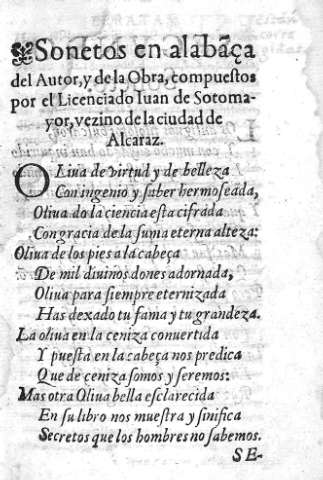 Sonetos en alabãça
del Autor, y de la Obra, compuestos
por el Licenciado Iuan de Sotoma-
yor, vezino de la ciudad de
Alcaraz.
OLiua de virtud y de belleza
Con ingenio y saber hermoseada,
Oliua do la ciencia esta cifrada
Con gracia de la suma eterna alteza:
Oliua de los pies a la cabeça
De mil diuinos dones adornada,
Oliua para siempre eternizada
Has dexado tu fama y tu grandeza.
La oliua en la ceniza conuertida
Y puesta en la cabeça nos predica
Que de ceniza somos y seremos:
Mas otra Oliua bella esclarecida
En su libro nos muestra y sinifica
Secretos que los hombres no sabemos.
SE-